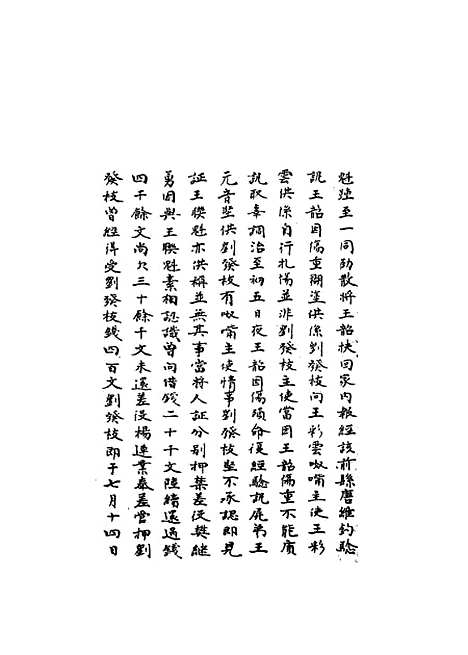 魁踵至一同勸散將王韶扶回家內報經該前縣唐維鈞驗
訊王韶因傷重糊塗供係劉發枝向王彩雲唆嘱主使王彩
雲供係自行扎傷並非劉發枝主使當因王韶傷重不能質
訊取辜調治至初五日夜王韶因傷殞命復經驗訊屍弟王
元音堅供劉發枝有唆嘱主使情事劉發枝堅不承認即見
証王聯魁亦供稱並無其事當將人証分別押葉差役樊繼
勇因與王聯魁素相認識曾向借錢二十千文陸續還過錢
四千餘文尚欠三十餘千文未還差役楊連業奉差管押劉
發枝曾經得受劉發枝錢四百文劉發枝即于七月十四日